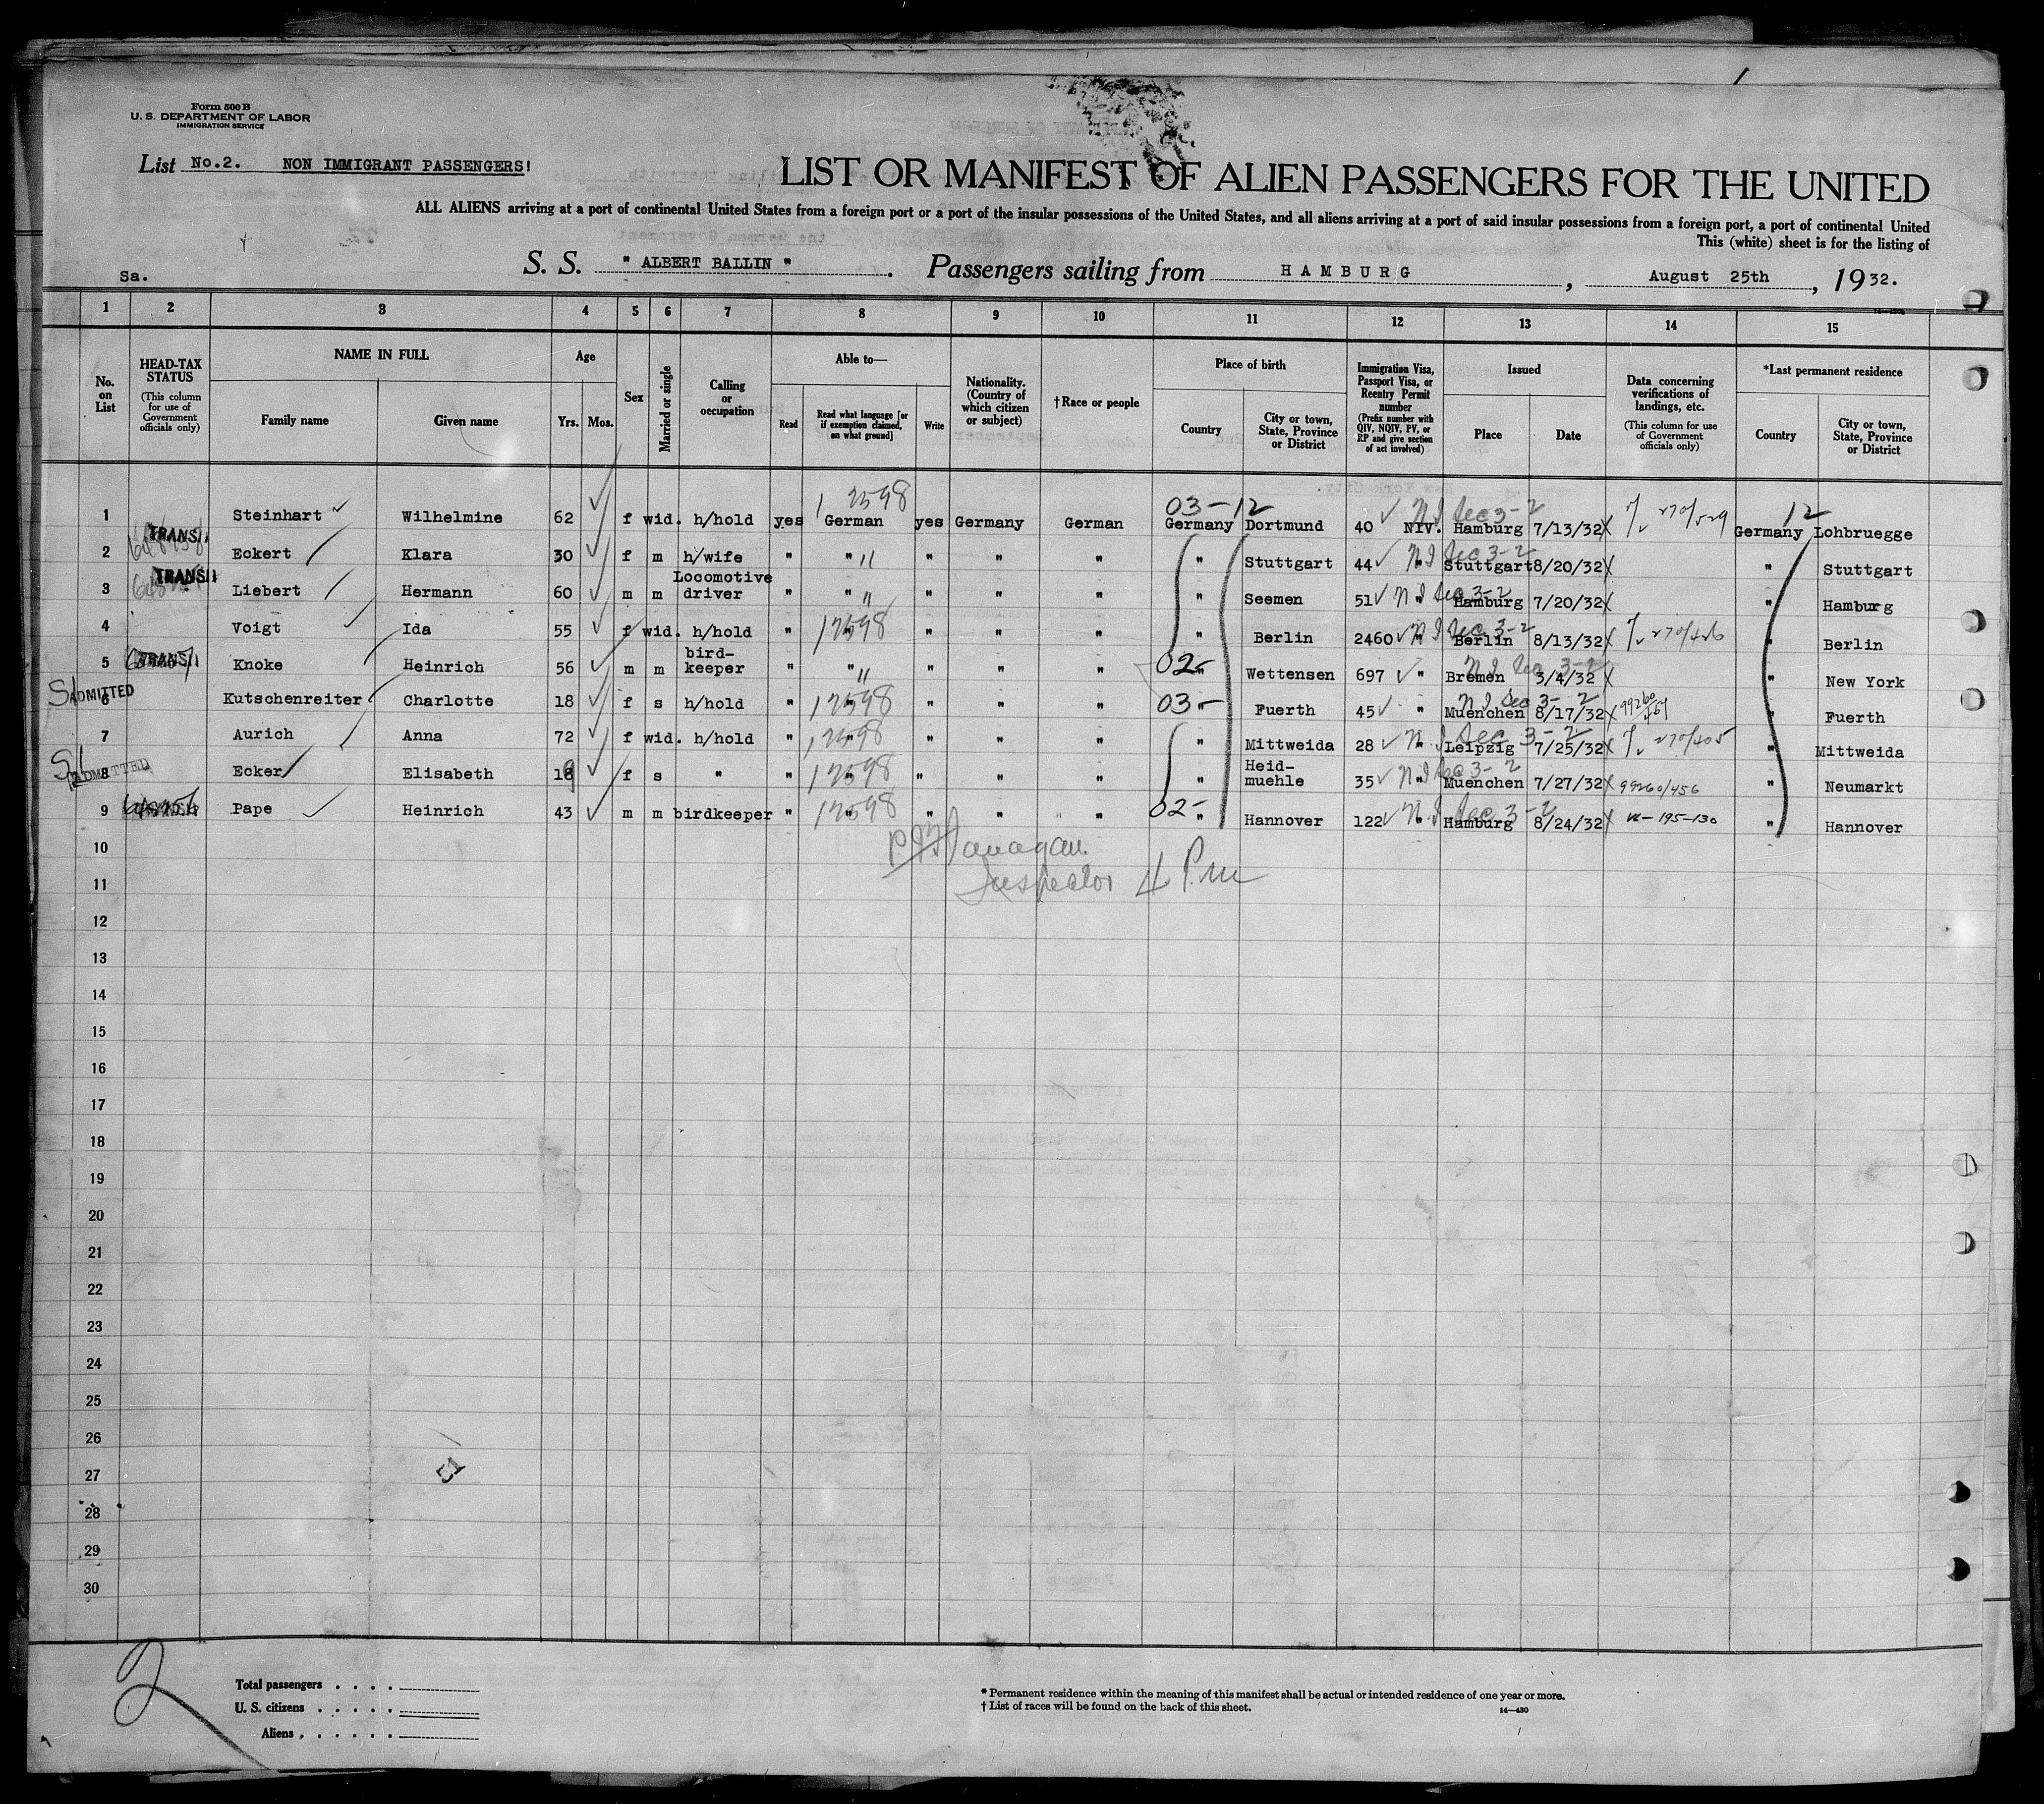 Form 500 B
U. S. DEPARTMENT OF LABOR
IMMIGRATION SERVICE
List No.2. NON IMMIGRANT PASSENGERS!
LIST OR MANIFEST OF ALIEN PASSENGERS FOR THE UNITED
ALL ALIENS arriving at a port of continental United States from a foreign port or a port of the insular possessions of the United States, and all aliens arriving at a port of said insular possessions from a foreign port, a port of continental United
This (white) sheet is for the listing of
Sa. S. S. " ALBERT BALLIN " . Passengers sailing from HAMBURG , August 25th , 1932.
1 2 3 4 5 6 7 8 9 10 11 12 13 14 15
No. on List
HEAD-TAX STATUS (This column for use of Government officials only)
NAME IN FULL
Family name Given name
Age
Yrs. Mos.
Sex
Married or single
Calling or occupation
Able to—
Read Read what language [or if exemption claimed, on what ground] Write
Nationality. (Country of which citizen or subject)
†Race or people
Place of birth
Country City or town, State, Province or District
Immigration Visa, Passport Visa, or Reentry Permit number (Prefix number with QIV, NQIV, PV, or RP and give section of act involved)
Issued
Place Date
Data concerning verifications of landings, etc. (This column for use of Government officials only)
*Last permanent residence
Country City or town, State, Province or District
03-12 12
1 Steinhart Wilhelmine 62 f wid. h/hold yes German yes Germany German Germany Dortmund 40 NIV. Hamburg 7/13/32 Germany Lohbruegge
2 TRANSIT Eckert Klara 30 f m h/wife " " " " " " Stuttgart 44 " Stuttgart 8/20/32 " Stuttgart
3 TRANSIT Liebert Hermann 60 m m Locomotive driver " " " " " " Seemen 51 " Hamburg 7/20/32 " Hamburg
4 Voigt Ida 55 f wid. h/hold " " " " " " Berlin 2460 " Berlin 8/13/32 " Berlin
5 TRANSIT Knoke Heinrich 56 m m bird-keeper " " " " " 02- " Wettensen 697 " Bremen 3/4/32 " New York
6 SI ADMITTED Kutschenreiter Charlotte 18 f s h/hold " 12598 " " " 03- " Fuerth 45 " Muenchen 8/17/32 " Fuerth
7 Aurich Anna 72 f wid. h/hold " 12598 " " " " Mittweida 28 " Leipzig 7/25/32 " Mittweida
8 SI ADMITTED Ecker Elisabeth 18 f s " " 12598 " " " " Heid-muehle 35 " Muenchen 7/27/32 99260/456 " Neumarkt
9 Pape Heinrich 43 m m birdkeeper " 12598 " " " 02- " Hannover 122 " Hamburg 8/24/32 " Hannover
Inspector
10
11
12
13
14
15
16
17
18
19
20
21
22
23
24
25
26
27
28
29
30
2
Total passengers . . . .
U. S. citizens . . . . .
Aliens . . . . . .
* Permanent residence within the meaning of this manifest shall be actual or intended residence of one year or more.
† List of races will be found on the back of this sheet.
14—430